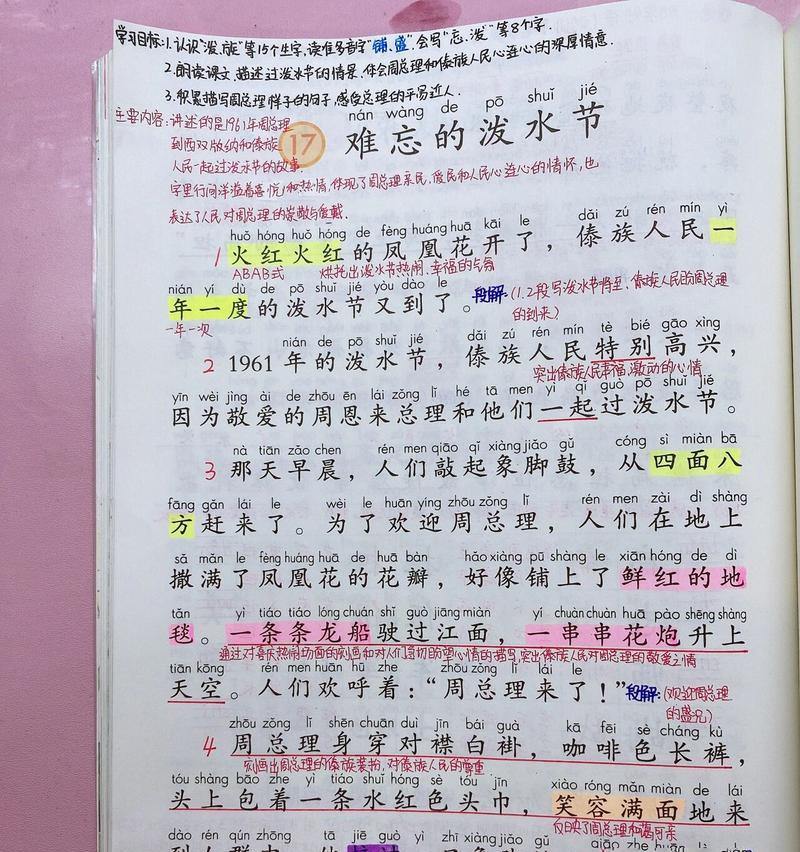 学习目标:1.认识"泼、族"等15个生字,读准多音字"铺、盛",会写"忘、泼"等8个字.
2.朗读课文,描述过泼水节的情景,体会周总理和傣族人民心连心的深厚情意.
3.积累描写周总理样子的句子,感受总理的平易近人.
主要内容:讲述的是1961年周总理
到西双版纳和傣族
人民一起过泼水节的故事.
字里行间洋溢着喜悦和热情,体现了周总理亲民,爱民和人民心连心的情怀,也
表达了人民对周总理的崇敬与爱戴.
nán wàng de pō shuǐ jié
17 难忘的泼水节
huǒ hóng huǒ hóng de fèng huáng huā kāi le dǎi zú rén mín yì
1 火红火红的凤凰花开了,傣族人民一
ABAB式 烘托出泼水节热闹、幸福的气氛
nián yí dù de pō shuǐ jié yòu dào le
年一度的泼水节又到了。
一年一次
段解:(1.2段写泼水节将至,傣族人民盼周总理
的到来)
nián de pō shuǐ jié dǎi zú rén mín tè bié gāo xìng
2 1961年的泼水节,傣族人民特别高兴,
突出傣族人民幸福,激动的心情
yīn wèi jìng ài de zhōu ēn lái zǒng lǐ hé tā men yì qǐ guò pō shuǐ jié
因为敬爱的周恩来总理和他们一起过泼水节。
nà tiān zǎo chen rén men qiāo qǐ xiàng jiǎo gǔ cóng sì miàn bā
3 那天早晨,人们敲起象脚鼓,从四面八
fāng gǎn lái le wèi le huān yíng zhōu zǒng lǐ rén men zài dì shàng
方赶来了。为了欢迎周总理,人们在地上
sǎ mǎn le fèng huáng huā de huā bàn hǎo xiàng pū shàng le xiān hóng de dì
撒满了凤凰花的花瓣,好像铺上了鲜红的地
tǎn yì tiáo tiáo lóng chuán shǐ guò jiāng miàn yí chuàn chuàn huā pào shēng shàng
毯。一条条龙船驶过江面,一串串花炮升上
通过对喜庆热闹场面的刻画和对人们急切盼望心情的描写,突出傣族人民对周总理的敬爱之情
tiān kōng rén men huān hū zhe zhōu zǒng lǐ lái le
天空。人们欢呼着:“周总理来了!”
段解:(欢迎周总理
的盛况)
zhōu zǒng lǐ shēn chuān duì jīn bái guà kā fēi sè cháng kù
4 周总理身穿对襟白褂,咖啡色长裤,
刻画出周总理的傣族装扮,对傣族人民的尊重
tóu shàng bāo zhe yì tiáo shuǐ hóng sè tóu jīn xiào róng mǎn miàn de lái
头上包着一条水红色头巾,笑容满面地来
反映了周总理和蔼可亲
dào rén qún zhōng tā jiē guò yì zhī xiàng jiǎo gǔ